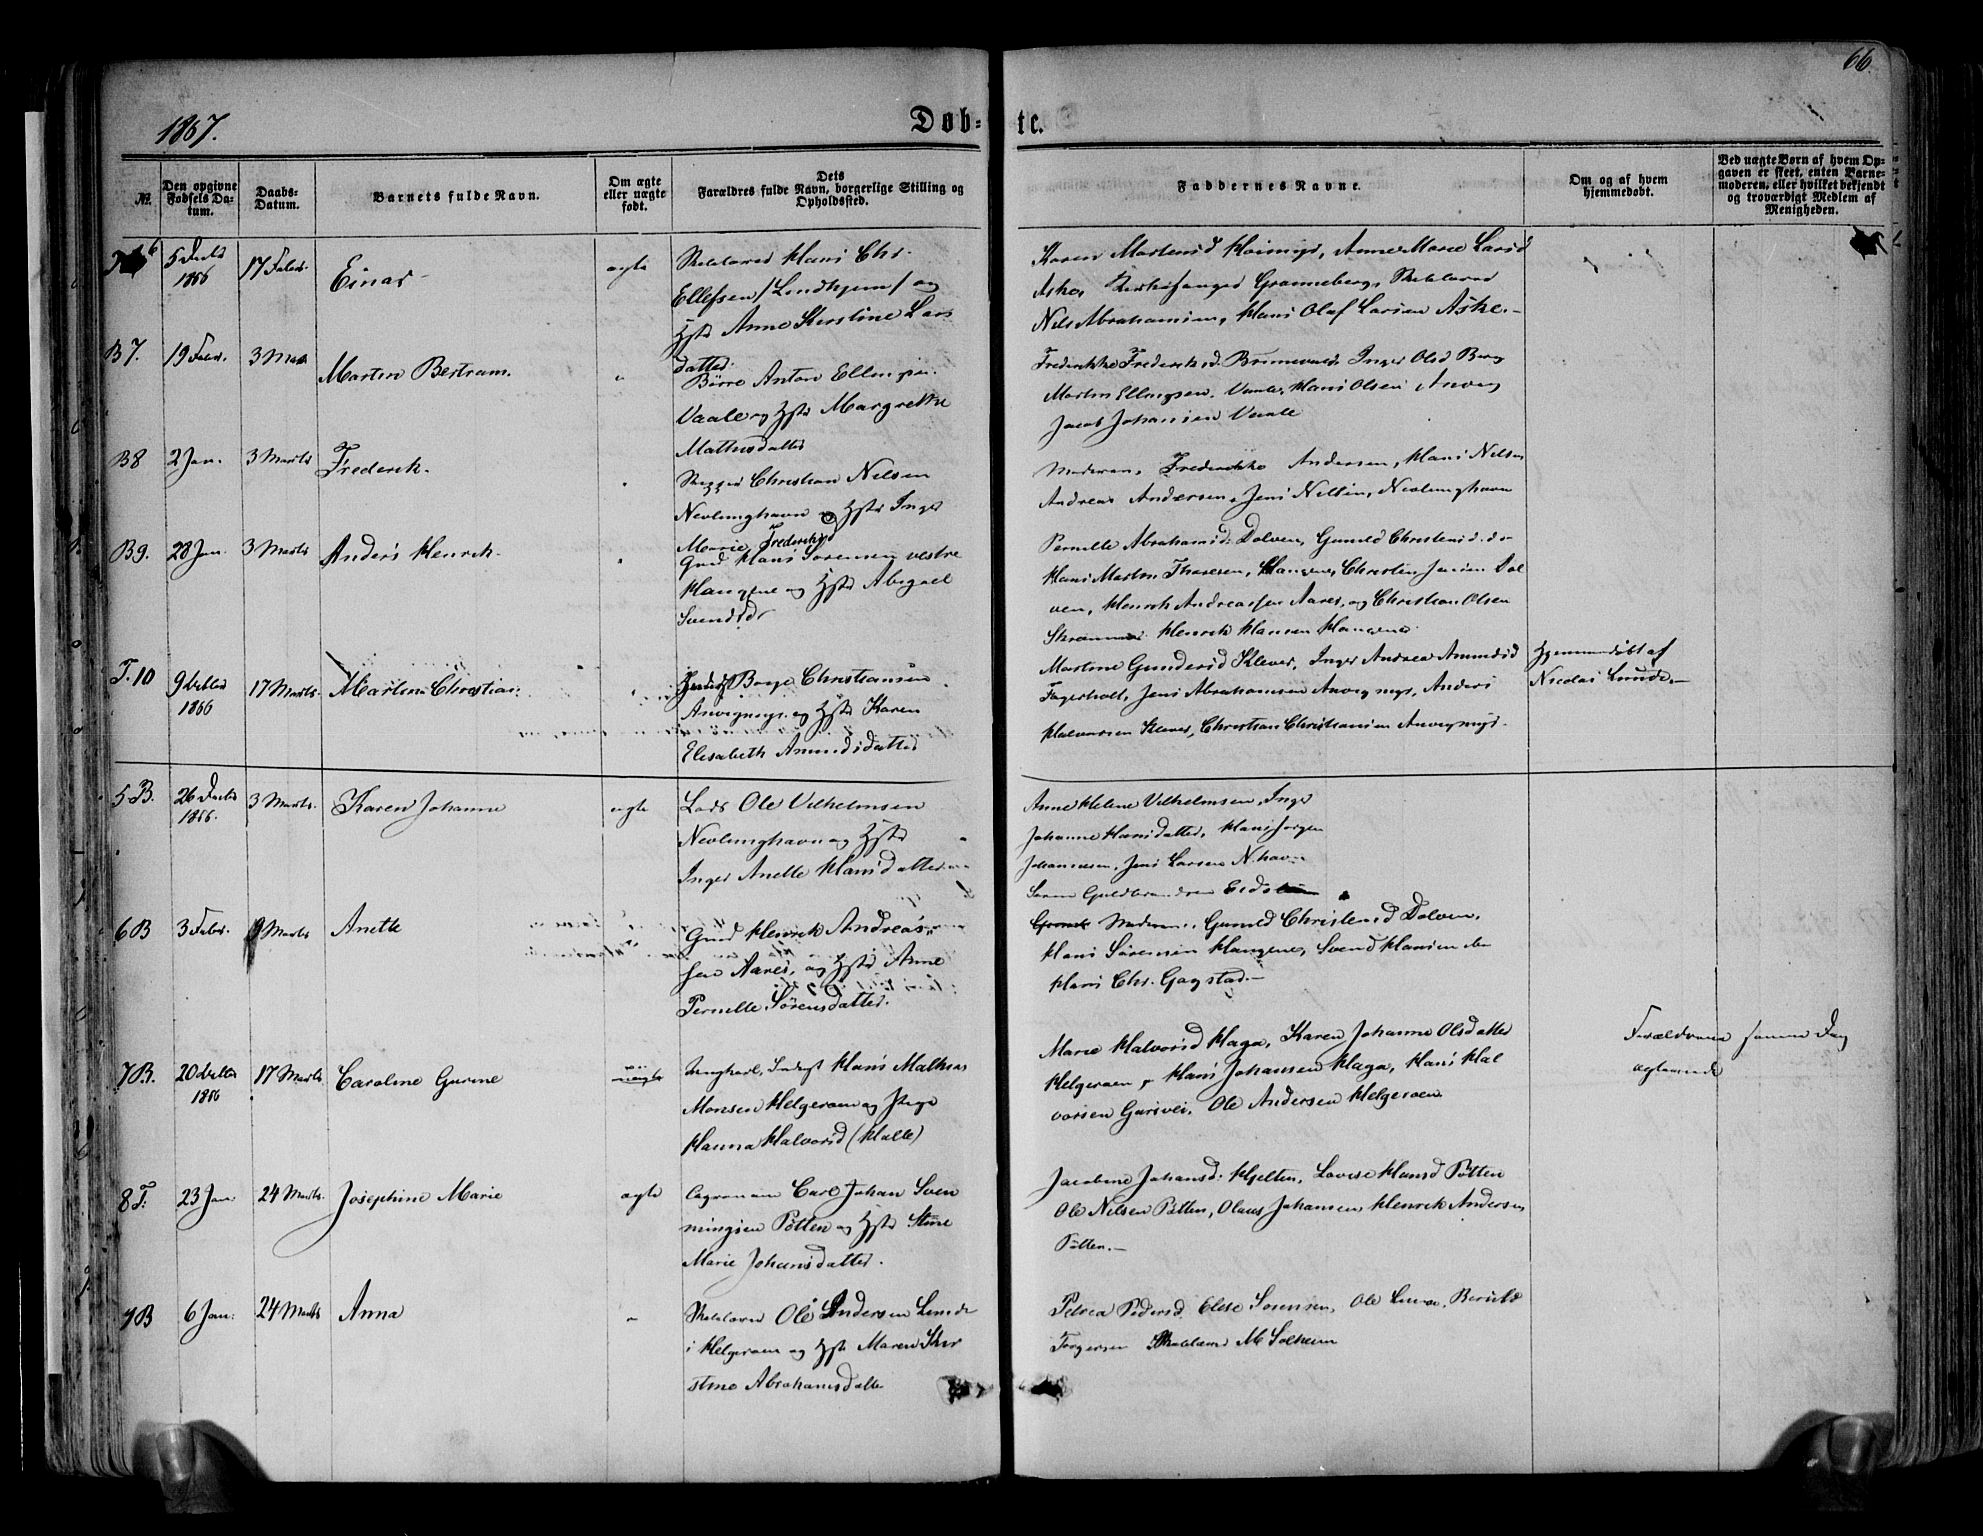 66
1867.
Døb-
te.
№.
Den opgivne Fødsels Datum.
Daabs-Datum.
Barnets fulde Navn.
Om ægte eller uægte født.
Dets Forældres fulde Navn, borgerlige Stilling og Opholdssted.
Faddernes Navne.
Om og af hvem hjemmedøbt.
Ved uægte Børn af hvem Opgaven er skeet, enten Barnemoderen, eller hvilket bekjendt og troværdigt Medlem af Menigheden.
6 5 Decbr 1866 17 Febr. Einar ægte Skolelærer Hans Chr.
Ellefsen /Lindhjem/ og
Hstr Anne Kirstine Lars
datter.
Karen Martensd Anne Marie Larsd
Aske, Kirkesanger Grønneberg, Skolelærer
Nils Abrahamsen, Hans Olaf Larsen Aske.-
B 7. 19 Febr. 3 Marts Martin Bertram. " Børre Anton Ellingsen
Vaale og Hstr Margrethe
Mathisdatter
Frederikke Frederiksd. Inger Olsd Berg
Martin Ellingsen. Vaale, Hans Olsen Anveg
Jacob Johansen Vaale
B 8 2 Jan. 3 Marts Frederik. " Christian Nilsen
Nevlunghavn og Hstr Inger
Marie Frederiksd
Moderen, Frederikke Andersen, Hans Nilsen
Andreas Andersen, Jens Nilsen, Nevlunghavn
B 9. 28 Jan. 3 Marts Anders Henrik. " Grd Hans Sørensen vestre
Hangene og Hstr Abigael
Svendsdr
Pernille Abrahamsd: Dolven, Gunild Christensd: do
Hans Martin Thoresen, Hangene, Christen Jensen Dol
ven, Henrik Andreassen Aarøs, og Christian Olsen
Henrik Hansen Hangene
T. 10 9 Decbr 1866 17 Marts. Martin Christian " Inderst Børge Christiansen
Anvegmyr. og Hstr Karen
Elisabeth Amundsdatter
Martine Gundersd Klever, Inger Andrea Amundsd
Fagerholt, Jens Abrahamsen Anvegmyr, Anders
Halvorsen Klever, Christian Christiansen Anvegmyr.
Hjemmedøbt af
Nicolai Lunde.-
5 B. 26 Decbr 1866. 3 Marts. Karen Johanne ægte Lods Ole Vilhelmsen
Nevlunghavn og Hstr
Inger Anette Hansdatter
Anne Helene Vilhelmsen, Inger
Johanne Hansdatter, Hans Jørgen
Johannesen, Jens Larsen N.havn
Søren Guldbrandsen
6 B 3 Febr. 9 Marts Anette Grd Henrik Andreas-
sen Aarøs, og Hstr Anne
Pernille Sørensdatter.
Moderen, Gunild Christensd Dolven,
Hans Sørensen Hangene, Svend Hansen do
Hans Chr. Gogstad.-
7 B. 20 Decbr 1866 17 Marts Caroline Gurine uægte Ungkarl, Inderst Hans Mathias
Monsen Helgeroen og Pige
Hanna Halvorsd (Halle)
Marie Halvorsd Haga, Karen Johanne Olsdatter
Helgeroen, Hans Johansen Haga, Hans Hal
vorsen Ole Andersen Helgeroen
Forældrene samme Dag
ægteviede
8 T. 23 Jan 24 Marts. Josephine Marie ægte Carl Johan Sven
ningsen Pøtten og Hstr Stine
Marie Johansdatter.
Jacobine Johansd: Hjelten, Lovise Hansd Pøtten
Ole Nilsen Pøtten, Olaus Johansen, Henrik Andersen
Pøtten.-
9 B 6 Jan. 24 Marts Anna " Skolelærer Ole Andersen Lunde
i Helgeroen og Hstr Maren Kir
stine Abrahamsdatter
Petrea Pedersd. Elise Sørensen, Ole
Torgersen Skolelærer M Solheim